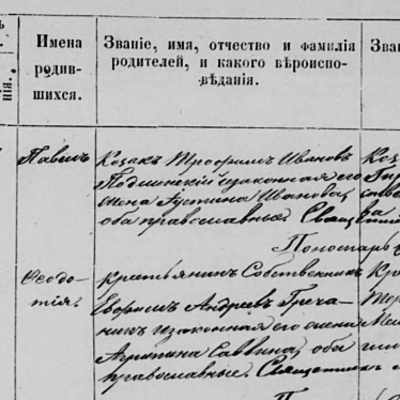 Имена
родив-
шихся.
нія.
Званіе, имя, отчество и фамилія
родителей, и какого вѣроиспо-
вѣданія.
Зва
Павелъ
Козакъ Трофимъ Ивановъ
и законная его
жена Іустина Иванова,
оба православные. Священ
Пономарь
Ѳеодо-
тія.
Крестьянинъ Собственникъ
Евфимъ Андреевъ Греча-
никъ и законная его жена
Агрипина Саввина, оба
православные. Священник
Коз
Кр